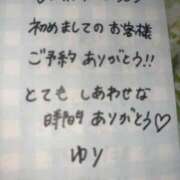 初めましてのお客様
ご予約ありがとう!!
とてもしあわせな
時間をありがとう♡
ゆり